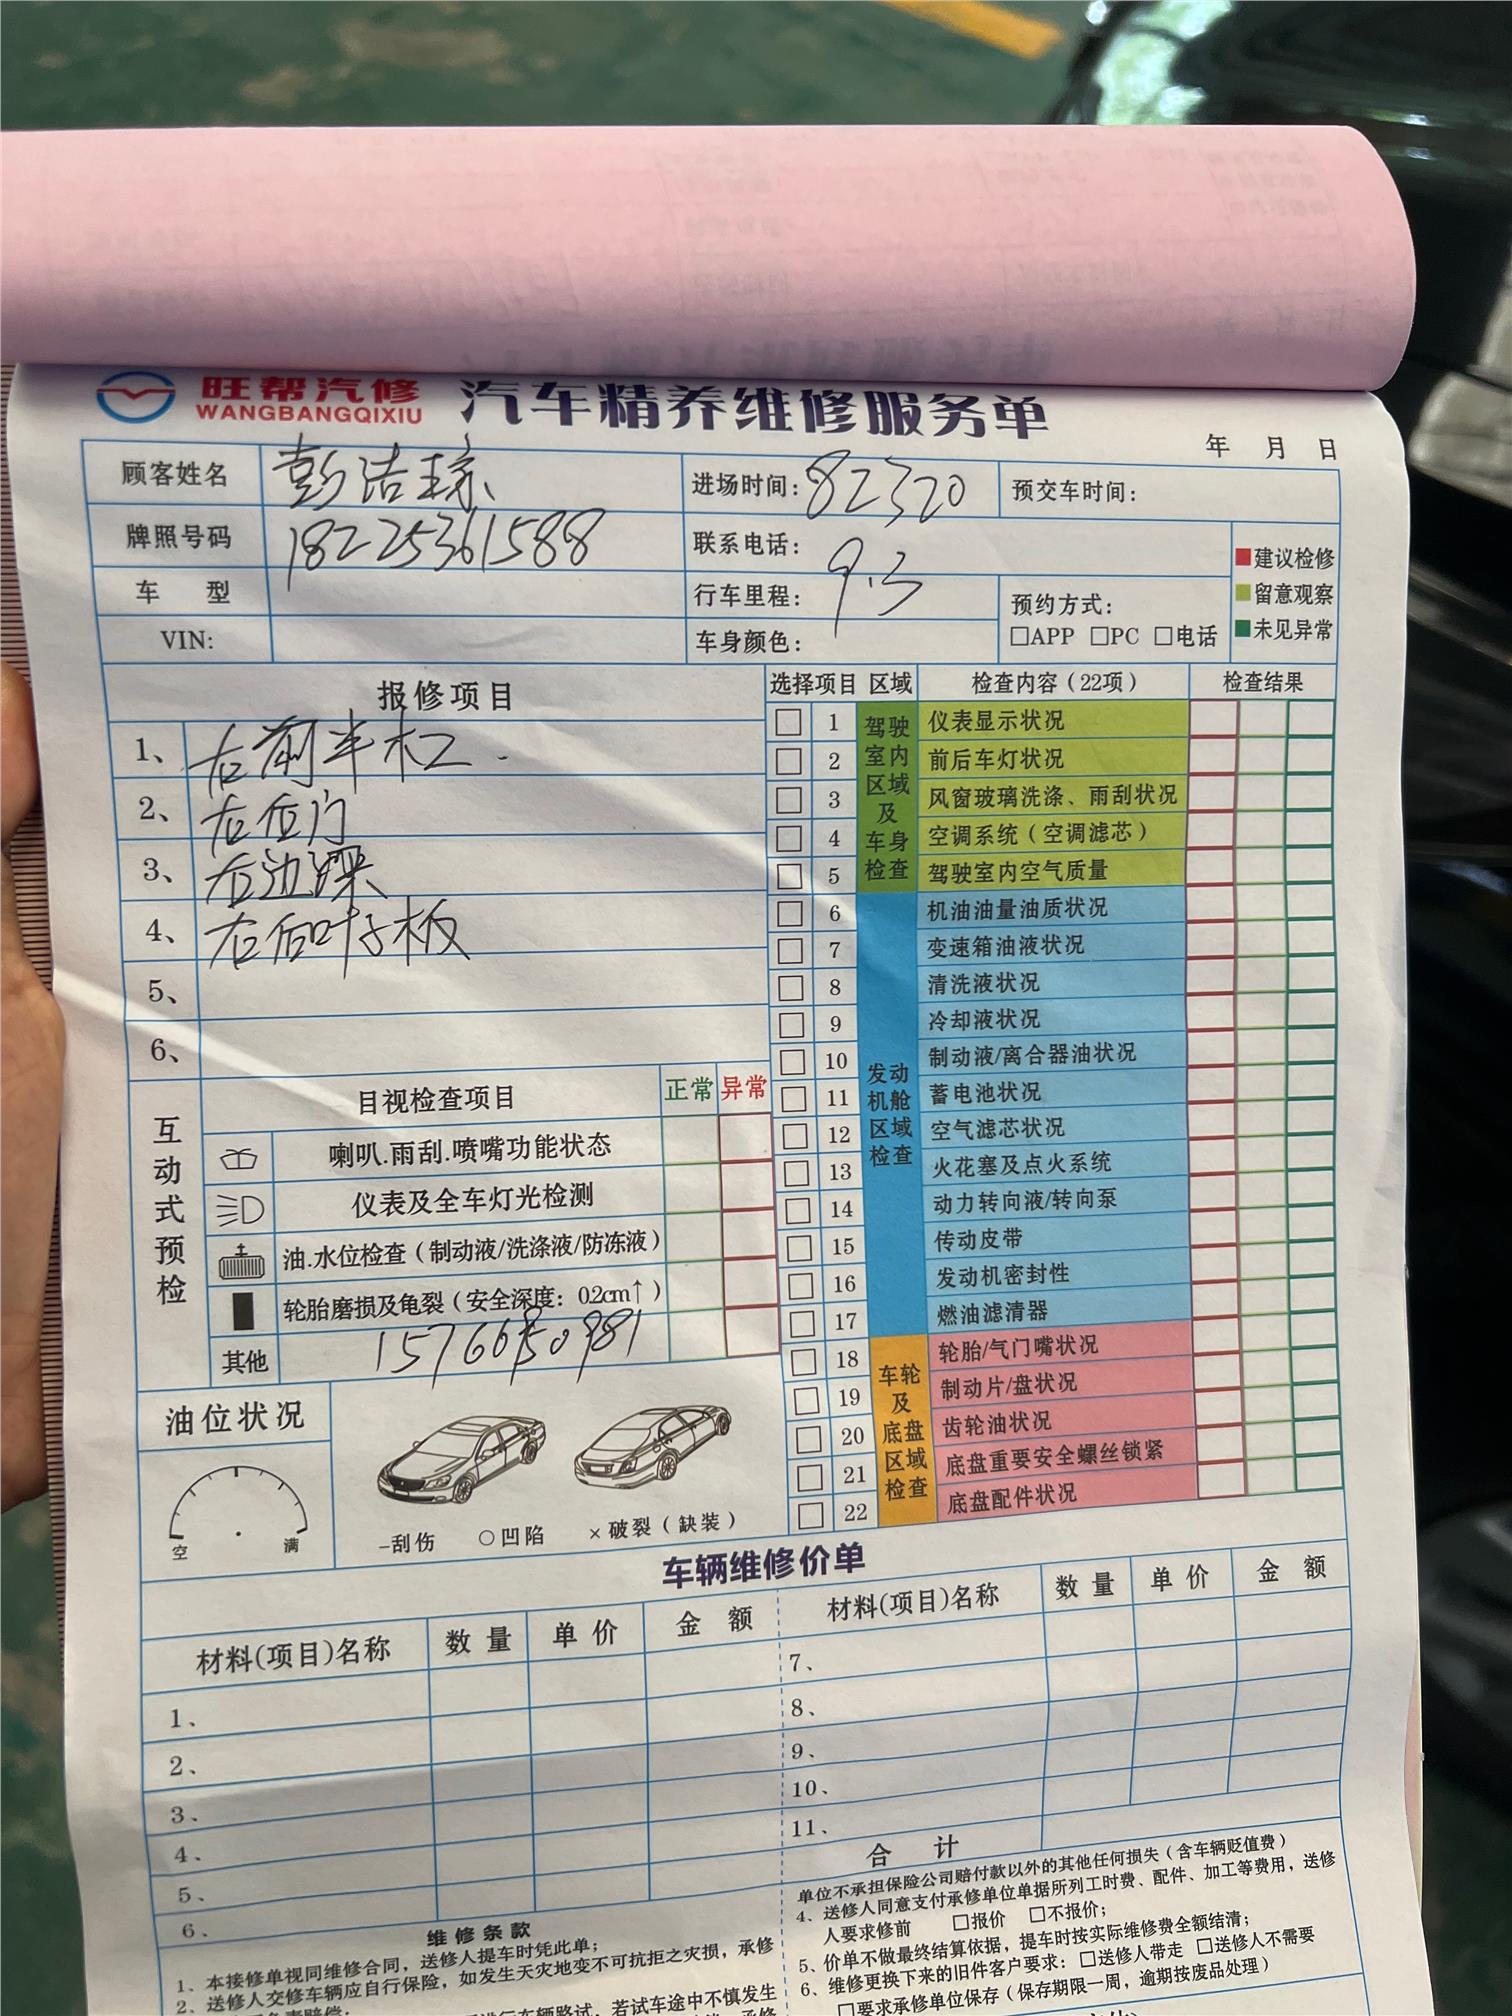 旺帮汽修
WANGBANGQIXIU
汽车精养维修服务单
年 月 日
顾客姓名 彭洁琼
进场时间: 82320
预交车时间:
牌照号码 18225361588
联系电话:
车 型
行车里程: 9.3
预约方式:
□APP □PC □电话
VIN:
车身颜色:
建议检修
留意观察
未见异常
报修项目
1、 右前半杠.
2、 右后门
3、 右边踩
4、 右后叶子板
5、
6、
互动式预检
目视检查项目 正常 异常
喇叭.雨刮.喷嘴功能状态
仪表及全车灯光检测
油.水位检查(制动液/洗涤液/防冻液)
轮胎磨损及龟裂(安全深度: 0.2cm↑)
其他
油位状况
空 满
-刮伤 ○凹陷 ×破裂(缺装)
选择项目 区域 检查内容(22项) 检查结果
驾驶室内区域及车身检查
1 仪表显示状况
2 前后车灯状况
3 风窗玻璃洗涤、雨刮状况
4 空调系统(空调滤芯)
5 驾驶室内空气质量
发动机舱区域检查
6 机油油量油质状况
7 变速箱油液状况
8 清洗液状况
9 冷却液状况
10 制动液/离合器油状况
11 蓄电池状况
12 空气滤芯状况
13 火花塞及点火系统
14 动力转向液/转向泵
15 传动皮带
16 发动机密封性
17 燃油滤清器
车轮及底盘区域检查
18 轮胎/气门嘴状况
19 制动片/盘状况
20 齿轮油状况
21 底盘重要安全螺丝锁紧
22 底盘配件状况
车辆维修价单
材料(项目)名称 数量 单价 金额
1、
2、
3、
4、
5、
6、
材料(项目)名称 数量 单价 金额
7、
8、
9、
10、
11、
合 计
维修条款
1、本接修单视同维修合同，送修人提车时凭此单;
2、送修人交修车辆应自行保险，如发生天灾地变不可抗拒之灾损，承修
单位不承担保险公司赔付款以外的其他任何损失(含车辆贬值费)
4、送修人同意支付承修单位单据所列工时费、配件、加工等费用，送修
人要求修前 □报价 □不报价;
5、价单不做最终结算依据，提车时按实际维修费全额结清;
6、维修更换下来的旧件客户要求: □送修人带走 □送修人不需要
□要求承修单位保存(保存期限一周，逾期按废品处理)